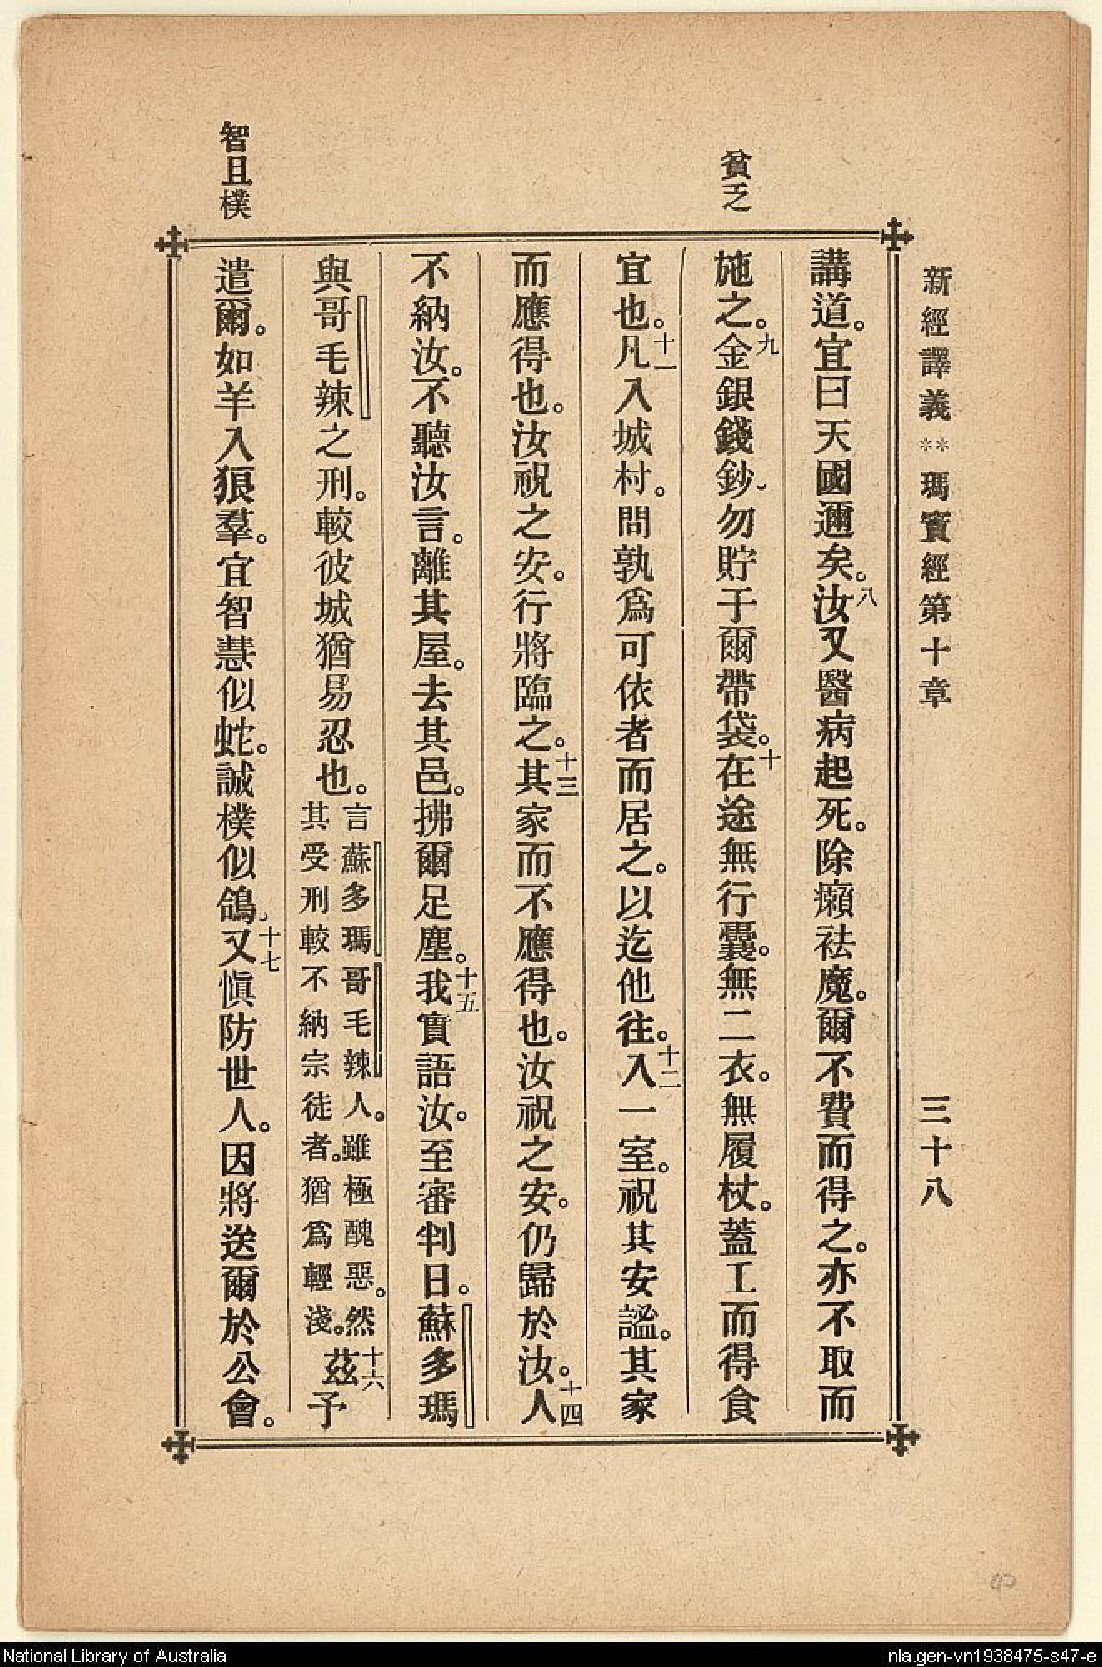 新經譯義**瑪竇經第十章 三十八
貧乏
智且樸
講道。宜曰天國邇矣。八汝又醫病起死。除癩祛魔。爾不費而得之。亦不取而
施之。九金銀錢鈔、勿貯于爾帶袋。十在途無行囊。無二衣。無履杖。蓋工而得食
宜也。十一凡入城村。問孰爲可依者而居之。以迄他往。十二入一室。祝其安謐。其家
而應得也。汝祝之安。行將臨之。十三其家而不應得也。汝祝之安。仍歸於汝。十四人
不納汝。不聽汝言。離其屋。去其邑。拂爾足塵。十五我實語汝。至審判日。蘇多瑪
與哥毛辣之刑。較彼城猶易忍也。言蘇多瑪哥毛辣人。雖極醜惡。然其受刑較不納宗徒者。猶爲輕淺。十六茲予
遣爾。如羊入狼羣。宜智慧似蛇。誠樸似鴿、十七又愼防世人。因將送爾於公會。
National Library of Australia
nla.gen-vn1938475-s47-e